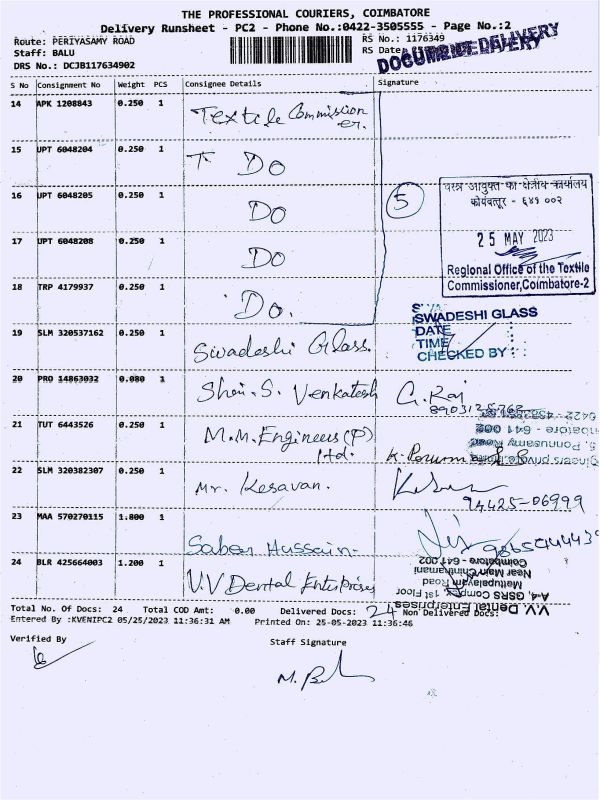 THE PROFESSIONAL COURIERS, COIMBATORE
Delivery Runsheet - PC2 - Phone No.:0422-3505555 - Page No.:2
Route: PERIYASAMY ROAD
RS No.: 1176349
Staff: BALU
RS Date:
DOCUMENT DELIVERY
DRS No.: DCJB117634902
S No Consignment No Weight PCS Consignee Details Signature
14 APK 1208843 0.250 1 Textile Commission
er.
15 UPT 6048204 0.250 1 DO
16 UPT 6048205 0.250 1 DO
5
वस्त्र आयुक्त का क्षेत्रीय कार्यालय
कोयंबत्तूर - ६४१ ००२
25 MAY 2023
Regional Office of the Textile
Commissioner,Coimbatore-2
17 UPT 6048208 0.250 1 DO
18 TRP 4179937 0.250 1 Do.
SWADESHI GLASS
DATE
TIME
CHECKED BY :
19 SLM 320537162 0.250 1 Swadeshi Glass.
20 PRO 14863032 0.080 1 Shri. S. Venkatesh G. Raj
21 TUT 6443526 0.250 1 M.M. Engineers (P)
ltd.
22 SLM 320382307 0.250 1 Mr. Kesavan.
94425-06999
23 MAA 570270115 1.800 1 Saber Hussain
24 BLR 425664003 1.200 1 V.V Dental Enterprises
V.V. Dental Enterprises
A-4, GSRS Complex, 1st Floor
Mettupalayam Road
Near Main Chinthamani
Coimbatore - 641 002
Total No. Of Docs: 24 Total COD Amt: 0.00 Delivered Docs: 24 Non Delivered Docs:
Entered By :KVENIPC2 05/25/2023 11:36:31 AM Printed On: 25-05-2023 11:36:46
Verified By
Staff Signature